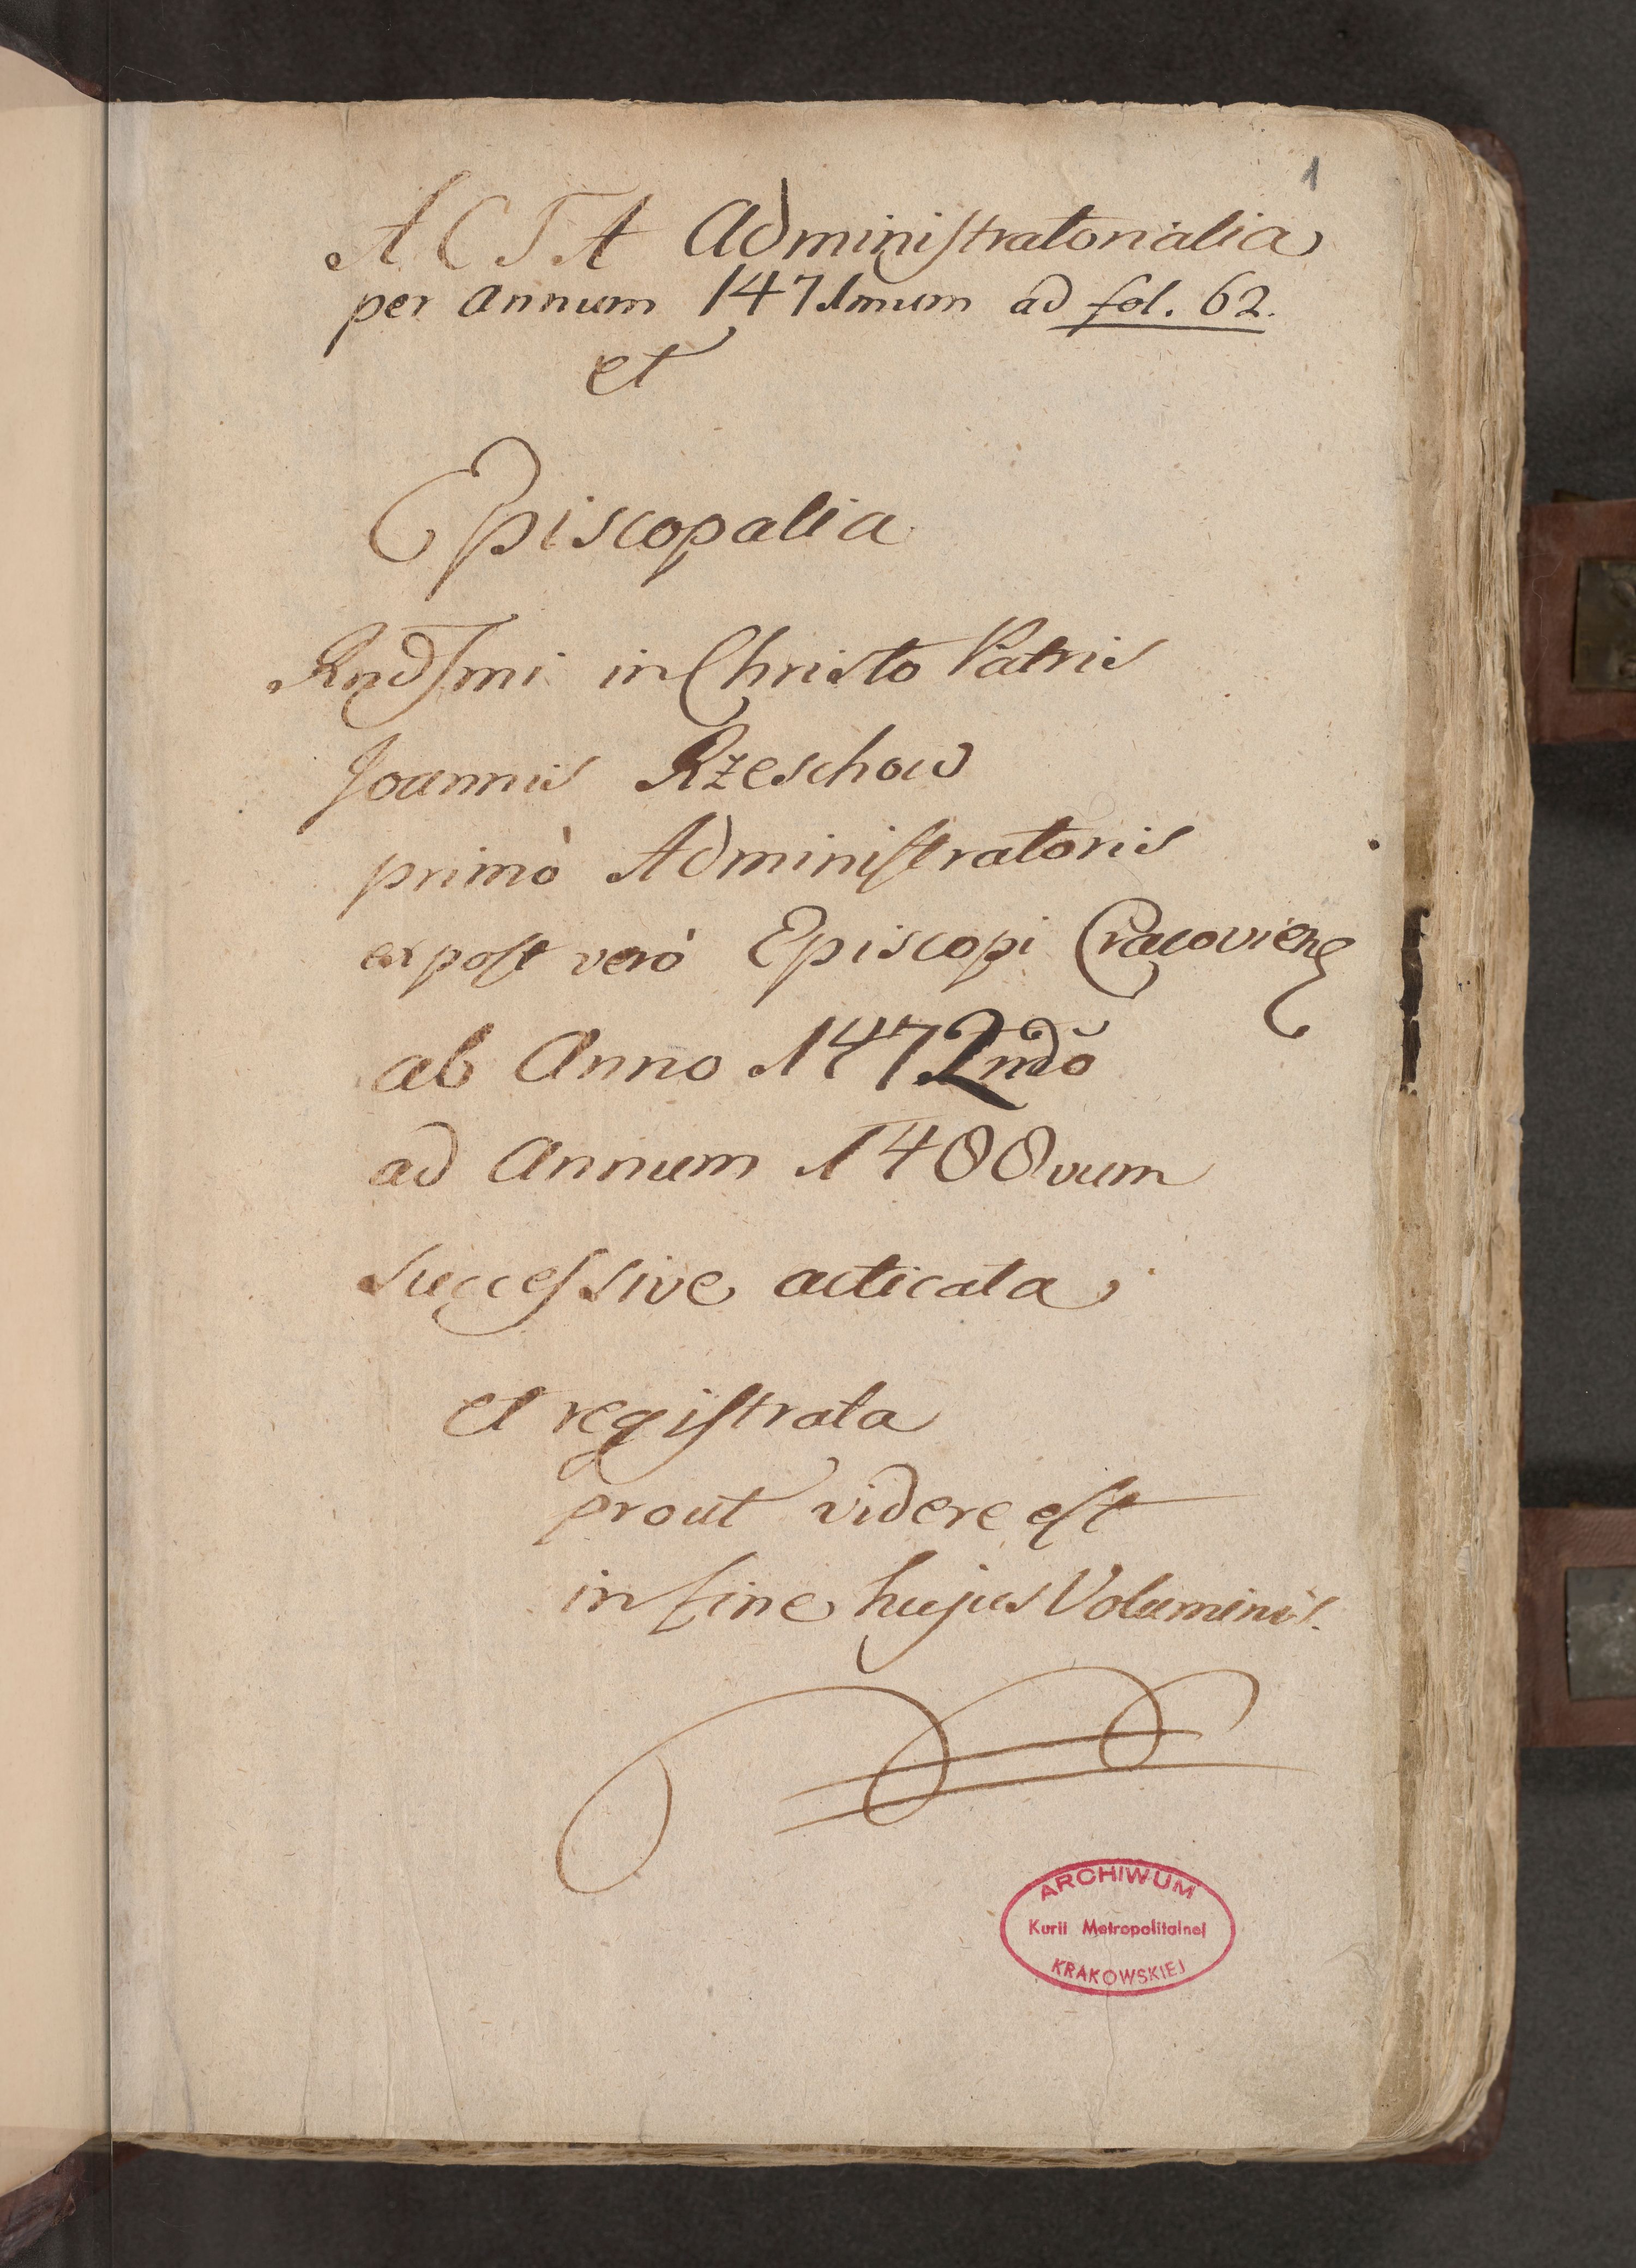 1
ACTA Administratorialia
per Annum 1471mum ad fol. 62.
et
Episcopalia
Rndſmi in Christo Patris
Joannis Rzeschow
primò Adminiſtratoris
ex poſt verò Episcopi Cracovieñ
ab Anno 1472ndo
ad Annum 1488vum
succeſsive acticata
et regiſtrata
prout videre eſt
in fine hujus Voluminis.
ARCHIWUM
Kurii Metropolitalnej
KRAKOWSKIEJ